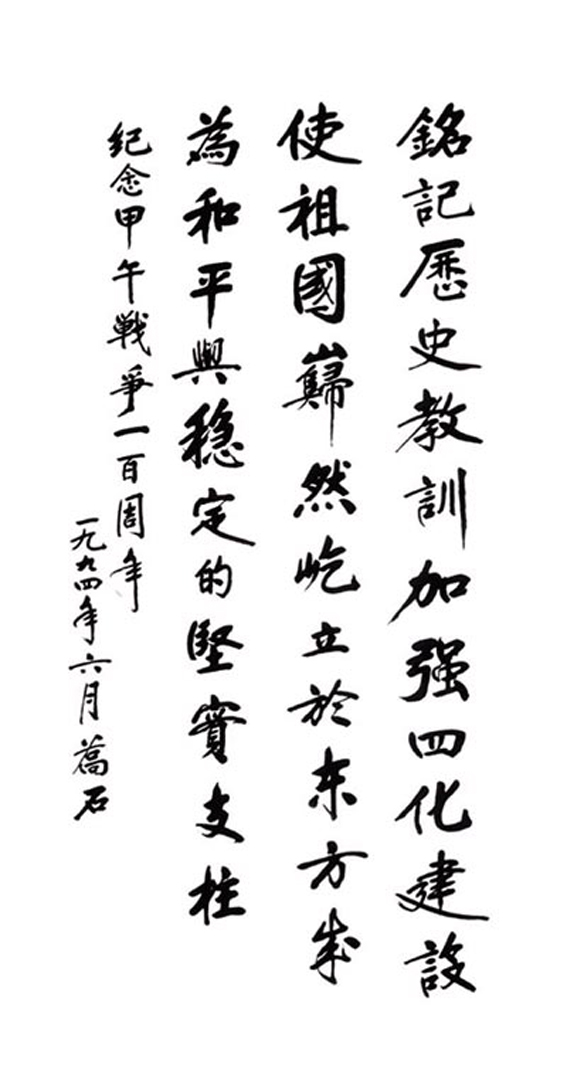 銘記歷史教訓加强四化建設
使祖國巋然屹立於东方成
為和平與穩定的堅實支柱
纪念甲午戰爭一百周年
一九九四年六月萬石